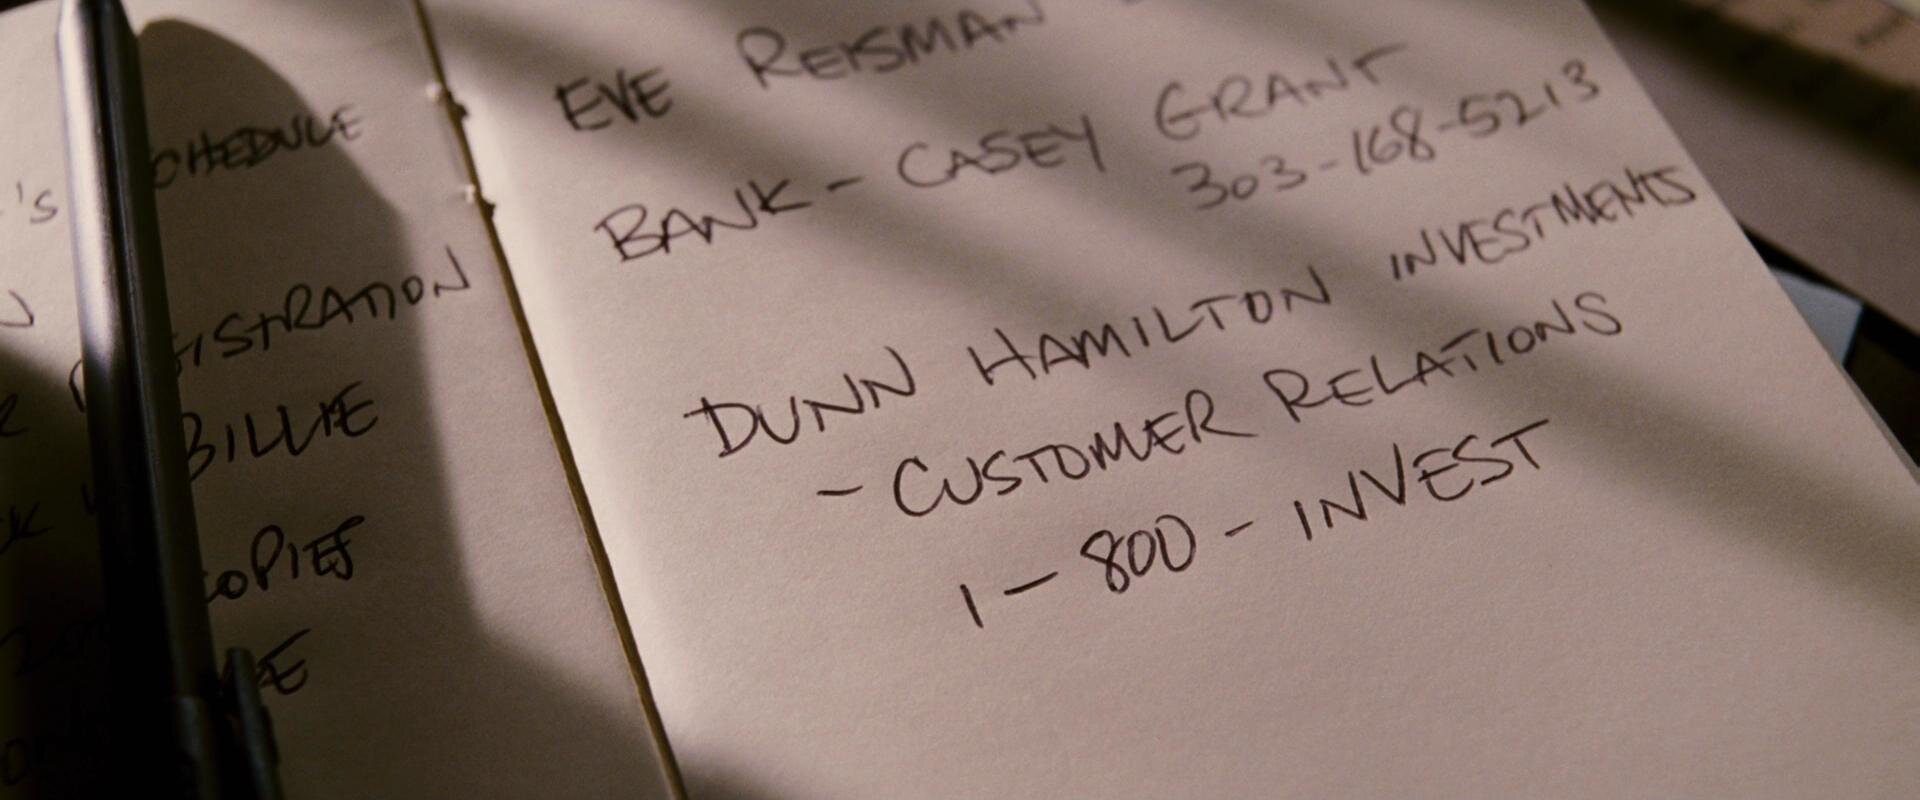 'S SCHEDULE
BILLIE
COPIES
EVE REISMAN
BANK - CASEY GRANT
303-168-5213
DUNN HAMILTON INVESTMENTS
- CUSTOMER RELATIONS
1-800-INVEST